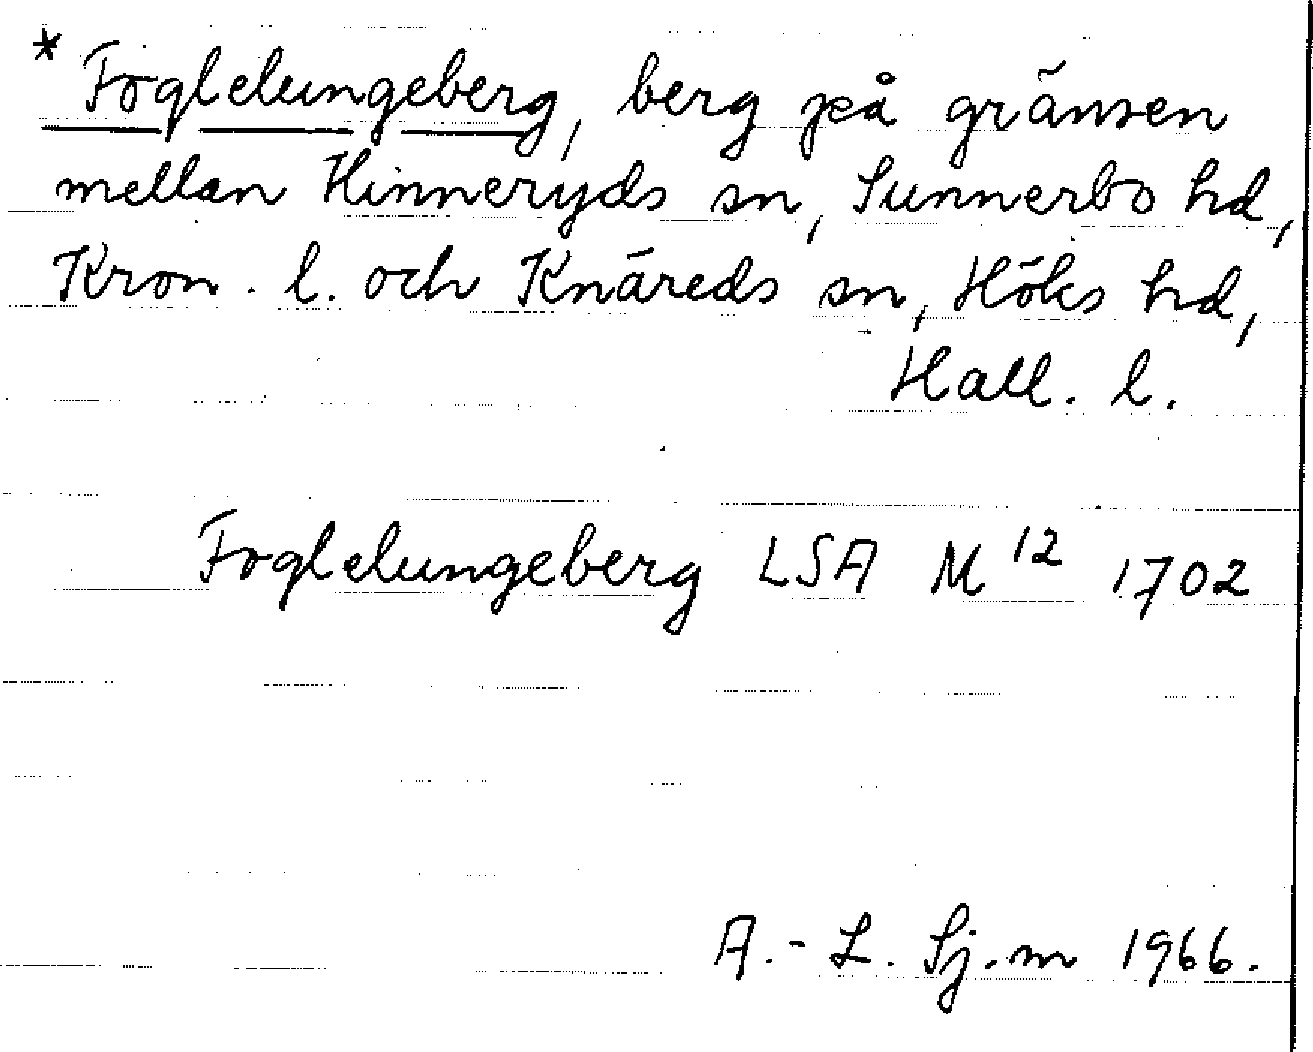 * Foglelungeberg, berg på gränsen
mellan Hinneryds sn, Sunnerbo hd,
Kron. l. och Knäreds sn, Höks hd,
Hall. l.
Foglelungeberg LSA M 12 1702
A.-L. Sj.m 1966.